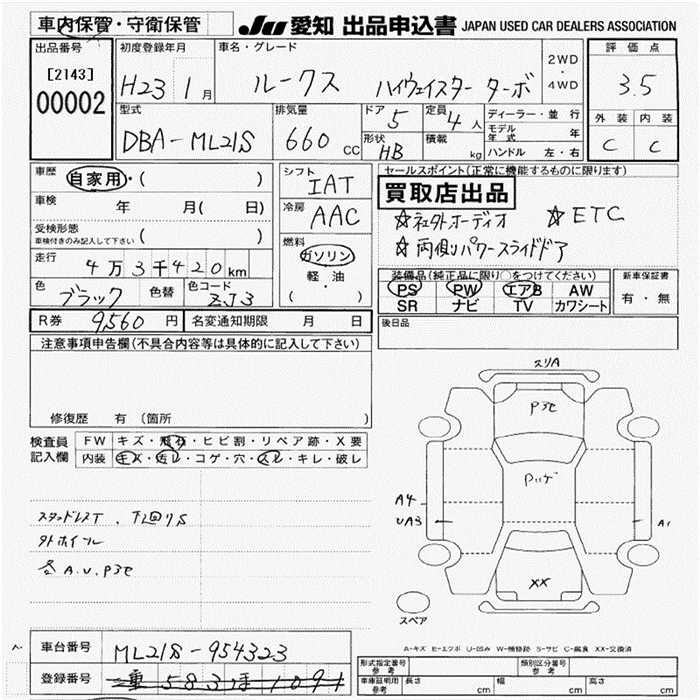 車内保管・守衛保管
JU 愛知 出品申込書 JAPAN USED CAR DEALERS ASSOCIATION
出品番号
[2143]
00002
初度登録年月
H23 1月
車名・グレード
ルークス ハイウェイスター ターボ
2WD
・
4WD
評価点
3.5
外装 内装
C C
型式
DBA-ML21S
排気量
660 CC
ドア 5
形状 HB
定員 4人
積載 kg
ディーラー・並行
モデル年式 年
ハンドル 左・右
車歴 自家用・( )
車検 年 月( 日)
受検形態
車検付きのみ記入して下さい ( )
走行 4万3千420km
色 ブラック 色替 色コード ZJ3
シフト IAT
冷房 AAC
燃料
ガソリン
軽・油
( )
セールスポイント(正常に機能するものに限ります)
買取店出品
☆社外オーディオ ☆ETC
☆両側パワースライドドア
装備品(純正品に限り○をつけてください)
PS PW エアB AW
SR ナビ TV カワシート
新車保証書
有・無
R券 9560円 名変通知期限 月 日
後日品
注意事項申告欄(不具合内容等は具体的に記入して下さい)
修復歴 有 (箇所 )
検査員
記入欄
FW キズ・飛石・ヒビ割・リペア跡・X要
内装 キズ・汚レ・コゲ・穴・スレ・キレ・破レ
スタッドレスT、下回りS
外ホイール
各A.U.P3セ
スリA
A4
UA3
A1
XX
スペア
A-キズ E-エクボ U-凹み W-補修跡 S-サビ C-腐食 XX-交換済
車台番号 ML21S-954323
登録番号
形式指定番号
参考
類別区分番号
参考
車庫証明用
参考
長さ cm 幅 cm 高さ cm